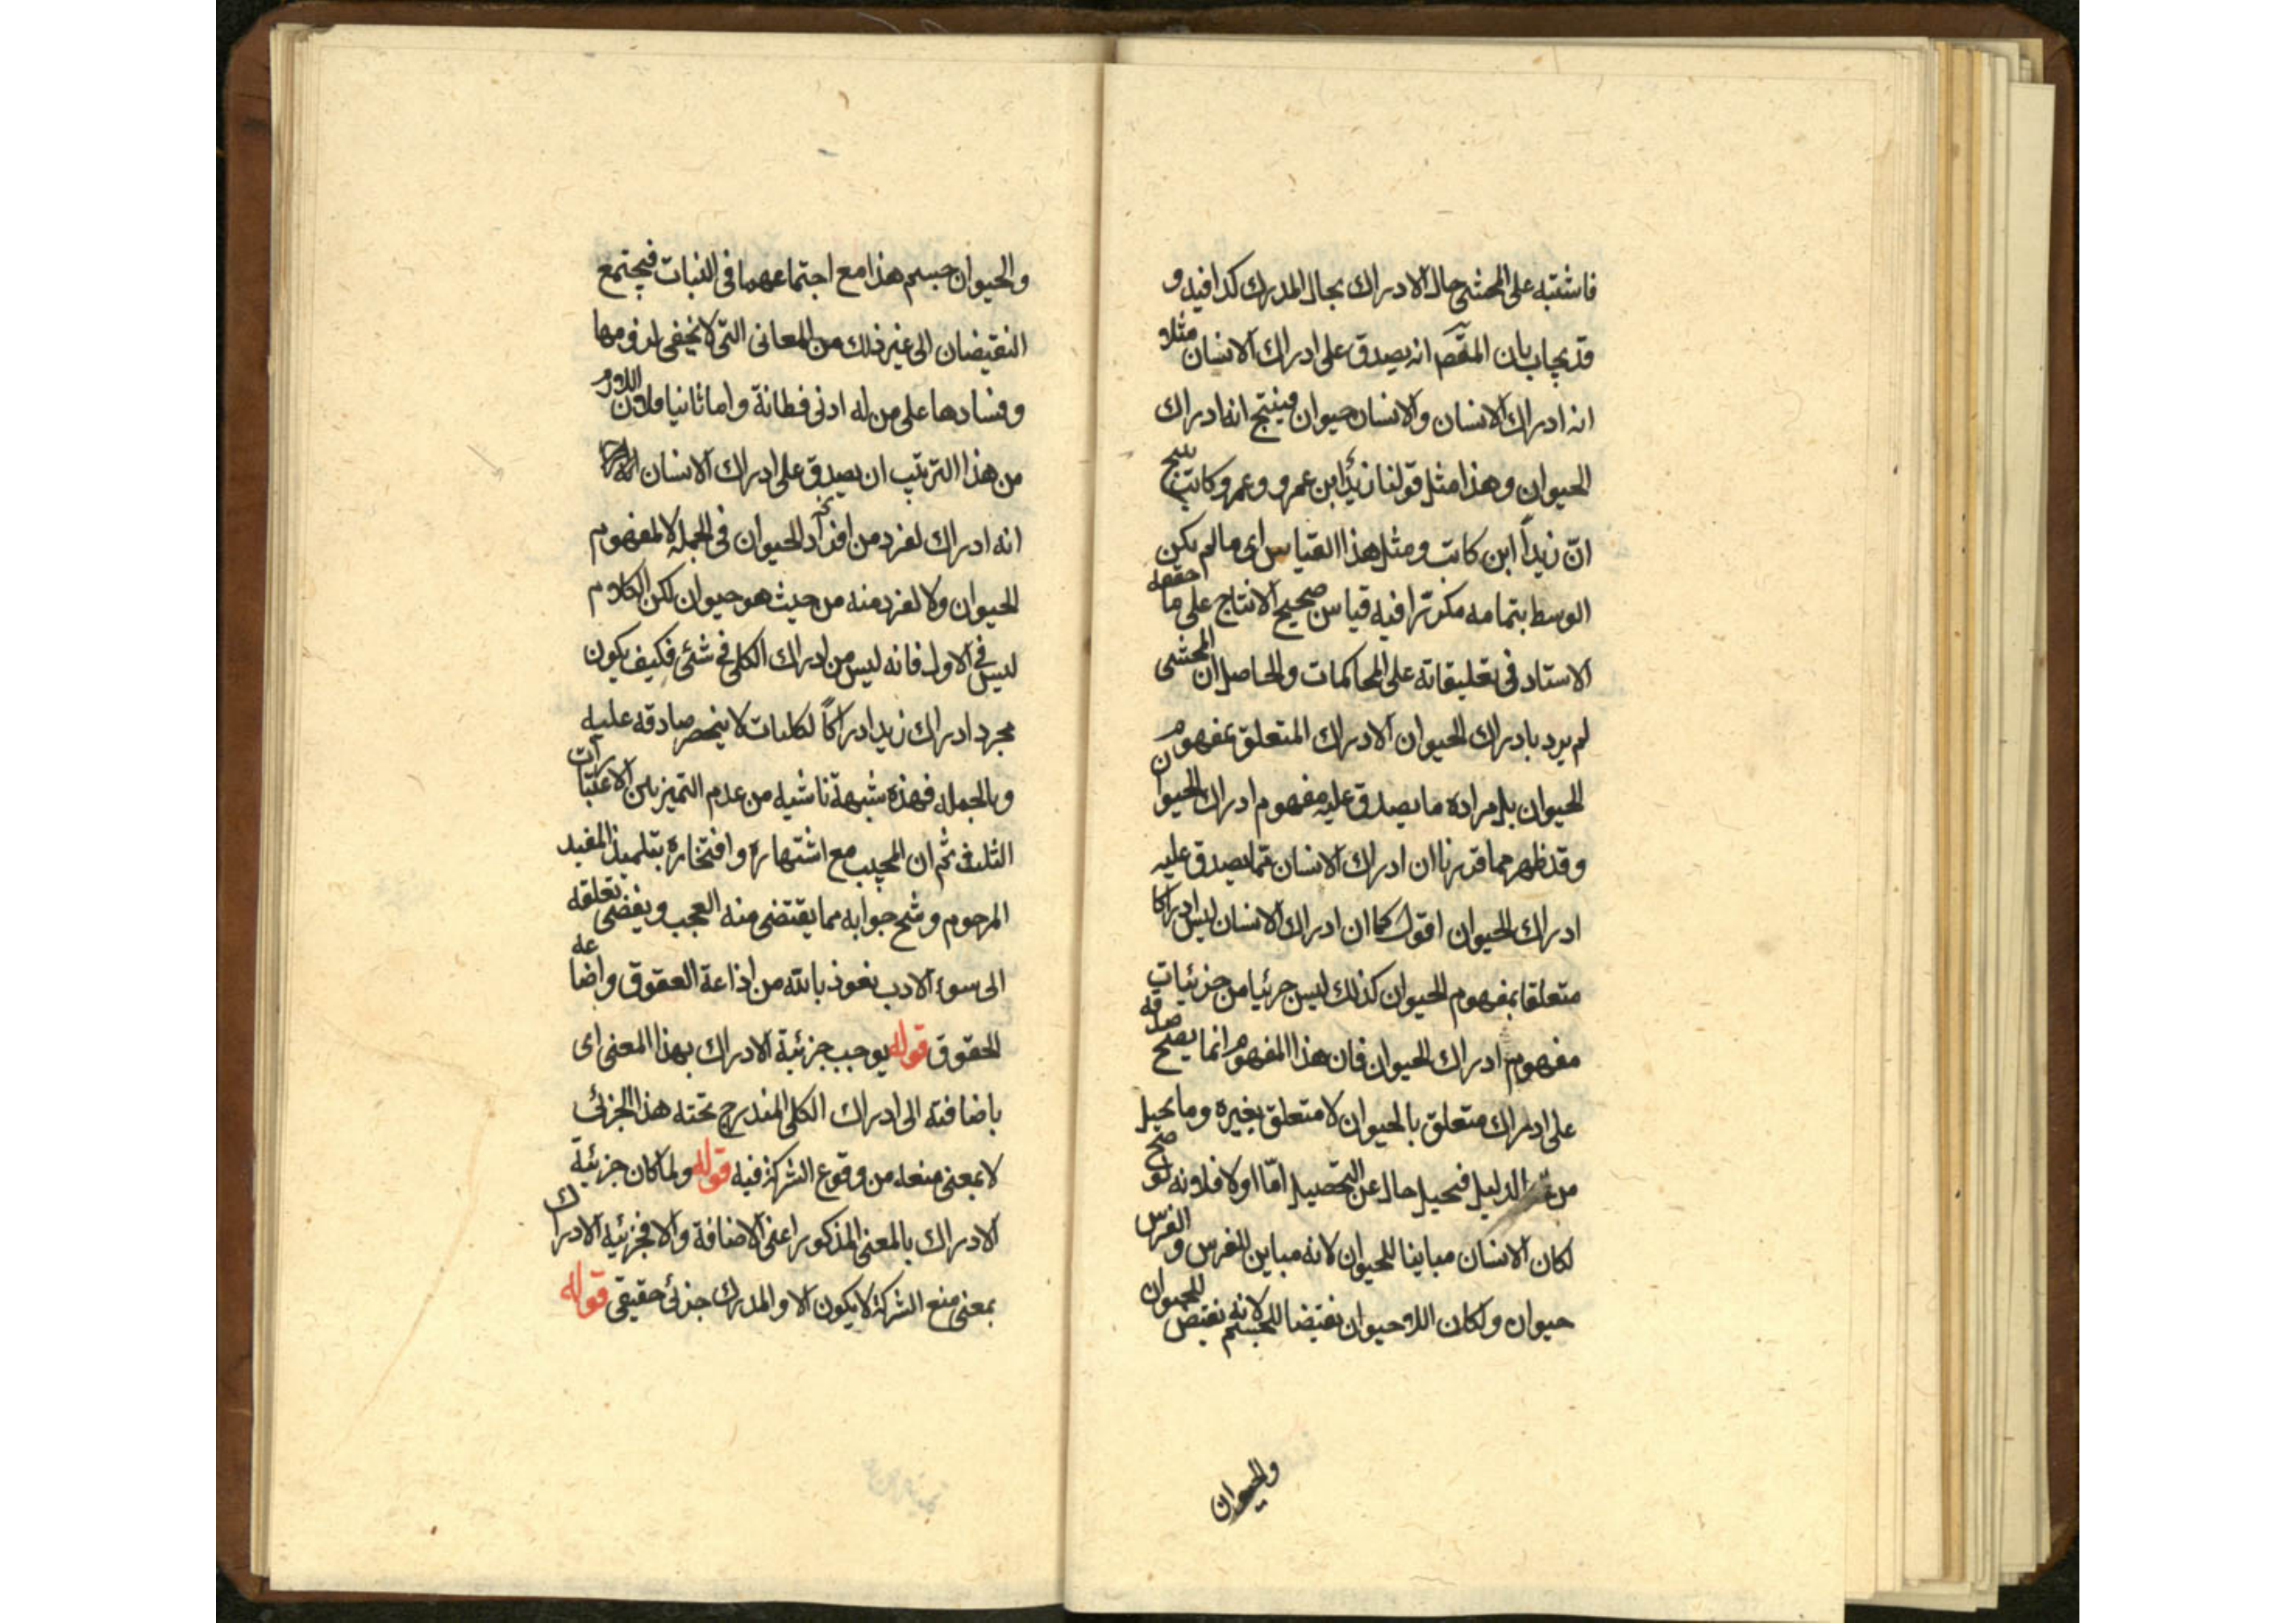 فاشتبه على المحشى حال الادراك بحال المدرك كذا افيد و
قد يجاب بان المقصم انه يصدق على ادراك الانسان مثلا
انه ادراك الانسان والانسان حيوان فينتج انه ادراك
الحيوان وهذا مثل قولنا زيد ابن عمرو وعمرو كاتب ينتج
انّ زيداً ابن كاتب ومثل هذا القياس اى ما لم يكن
الوسط بتمامه مكررا فيه قياس صحيح الانتاج على ما حققه
الاستاد فى تعليقاته على المحاكمات والحاصل ان المحشى
لم يرد بادراك الحيوان الادراك المتعلق بمفهوم
الحيوان بل مراده ما يصدق عليه مفهوم ادراك الحيوان
وقد ظهر مما قررنا ان ادراك الانسان مما يصدق عليه
ادراك الحيوان اقول كما ان ادراك الانسان ليس ادراكا
متعلقا بمفهوم الحيوان كذلك ليس جزئيا من جزئيات
مفهوم ادراك الحيوان فان هذا المفهوم انما يصح صدقه
على ادراك متعلق بالحيوان لا متعلق بغيره وما يحيل
من الدليل فحيل حال عن التحصيل امّا اولا فلانه لو صح
لكان الانسان مباينا للحيوان لانه مباين للفرس والفرس
حيوان ولكان اللاحيوان نقيضا للجسم لانه نقيض للحيوان
والحيوان
والحيوان جسم هذا مع اجتماعهما فى النبات فيجتمع
النقيضان الى غير ذلك من المعانى التى لا يخفى لزومها
وفسادها على من له ادنى فطانة واما ثانيا فلان اللازم
من هذا الترتيب ان يصدق على ادراك الانسان
انه ادراك لفرد من افراد الحيوان فى الجملة لا لمفهوم
الحيوان ولا لفرد منه من حيث هو حيوان لكن الكلام
ليس فى الاول فانه ليس من ادراك الكلى فى شئ فكيف يكون
مجرد ادراك زيد ادراكاً لكليات لا ينحصر صادقه عليه
وبالجملة فهذه شبهة ناشيه من عدم التميز بين الاعتبارات
الثلث ثم ان المجيب مع اشتهاره وافتخاره بتلميذ المفيد
المرحوم وشح جوابه مما يقتضى منه العجب ويفضى تعلقه
الى سوء الادب نعوذ بالله من اذاعة العقوق واضاعه
الحقوق قوله يوجب جزئية الادراك بهذا المعنى اى
باضافته الى ادراك الكلى المندرج تحته هذا الجزئى
لا بمعنى منعه من وقوع الشركة فيه قوله ولما كان جزئية
الادراك بالمعنى المذكور اعنى الاضافة والا فجزئية الادراك
بمعنى منع الشركة لا يكون الا والمدرك جزئى حقيقى قوله